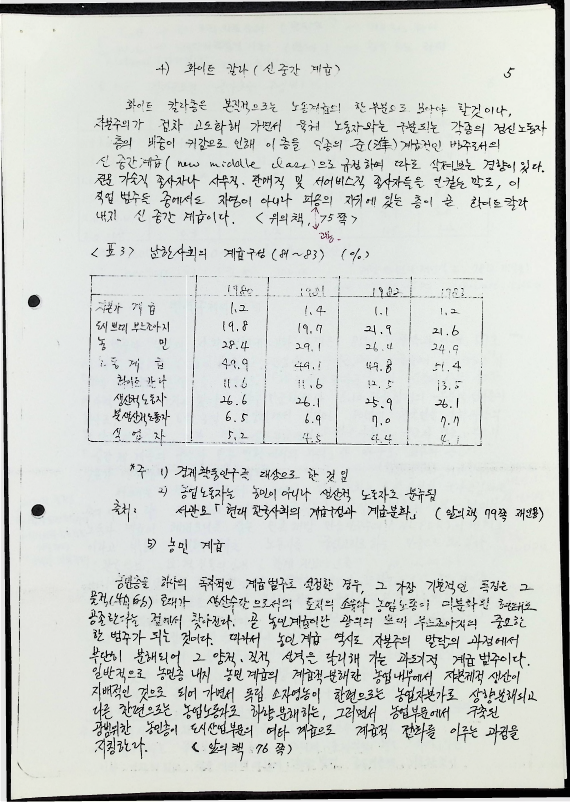 4) 화이트 칼라 (신중간 계급)
5
화이트 칼라층은 본질적으로는 노동계급의 한부분으로 보아야 할것이나,
자본주의가 점차 고도화해 가면서 육체 노동자와는 구분되는 각종의 정신노동자
층의 비중이 커감으로 인해 이 층을 준(準)계급적인 범주로서의
신중간계급 (new middle class)으로 규정하여 따로 살펴보는 경향이 있다.
전문 기술직 종사자나 사무직·판매직 및 서어비스직 종사자들을 말로, 이
직업 범주들 중에서도 자영이 아니라 피용의 지위에 있는 층이 곧 화이트칼라
내지 신중간 계급이다. <위의책, 75쪽>
<표3> 남한사회의 계급구성 (81~83) (%)
1980 1981 1982 1983
자본가 계급 1.2 1.4 1.1 1.2
도시 쁘띠 부르조아지 19.8 19.7 21.9 21.6
농 민 28.4 29.1 26.4 24.9
노동 계급 49.9 49.1 49.8 51.4
화이트 칼라 11.6 11.6 12.5 13.5
생산적노동자 26.6 26.1 25.9 26.1
불생산적노동자 6.5 6.9 7.0 7.7
실업자 5.2 4.5 4.4 4.1
*주 1) 경제활동인구를 대상으로 한 것임
2) 농업노동자는 농민이 아니라 생산적 노동자로 분류됨
출처: 서관모 「현대 한국사회의 계급구성과 계급분화」 (앞의책 79쪽 재인용)
5) 농민 계급
농민층을 하나의 독자적인 계급범주로 설정한 경우, 그 가장 기본적인 특징은 그
물적 토대가 생산수단으로서의 토지의 소유와 농업노동이 미분화된 형태로
공존한다는 점에서 찾아진다. 곧 농민계급이란 광의의 쁘띠 부르조아지의 중요한
한 범주가 되는 것이다. 따라서 농민계급 역시도 자본주의 발달의 과정에서
부단히 분해되어 그 양적·질적 성격을 달리해 가는 과도기적 계급범주이다.
일반적으로 농민층 내지 농민 계급의 계급적분해란 농업내부에서 자본제적 생산이
지배적인 것으로 되어 가면서 독립 소자영농이 한편으로는 농업자본가로 상향분해되고
다른 한편으로는 농업노동자로 하향분해하는, 그러면서 농업부문에서 구축된
광범위한 농민층이 도시산업부문의 여타 계급으로 계급적 전화를 이루는 과정을
지칭한다. <앞의책 76쪽>